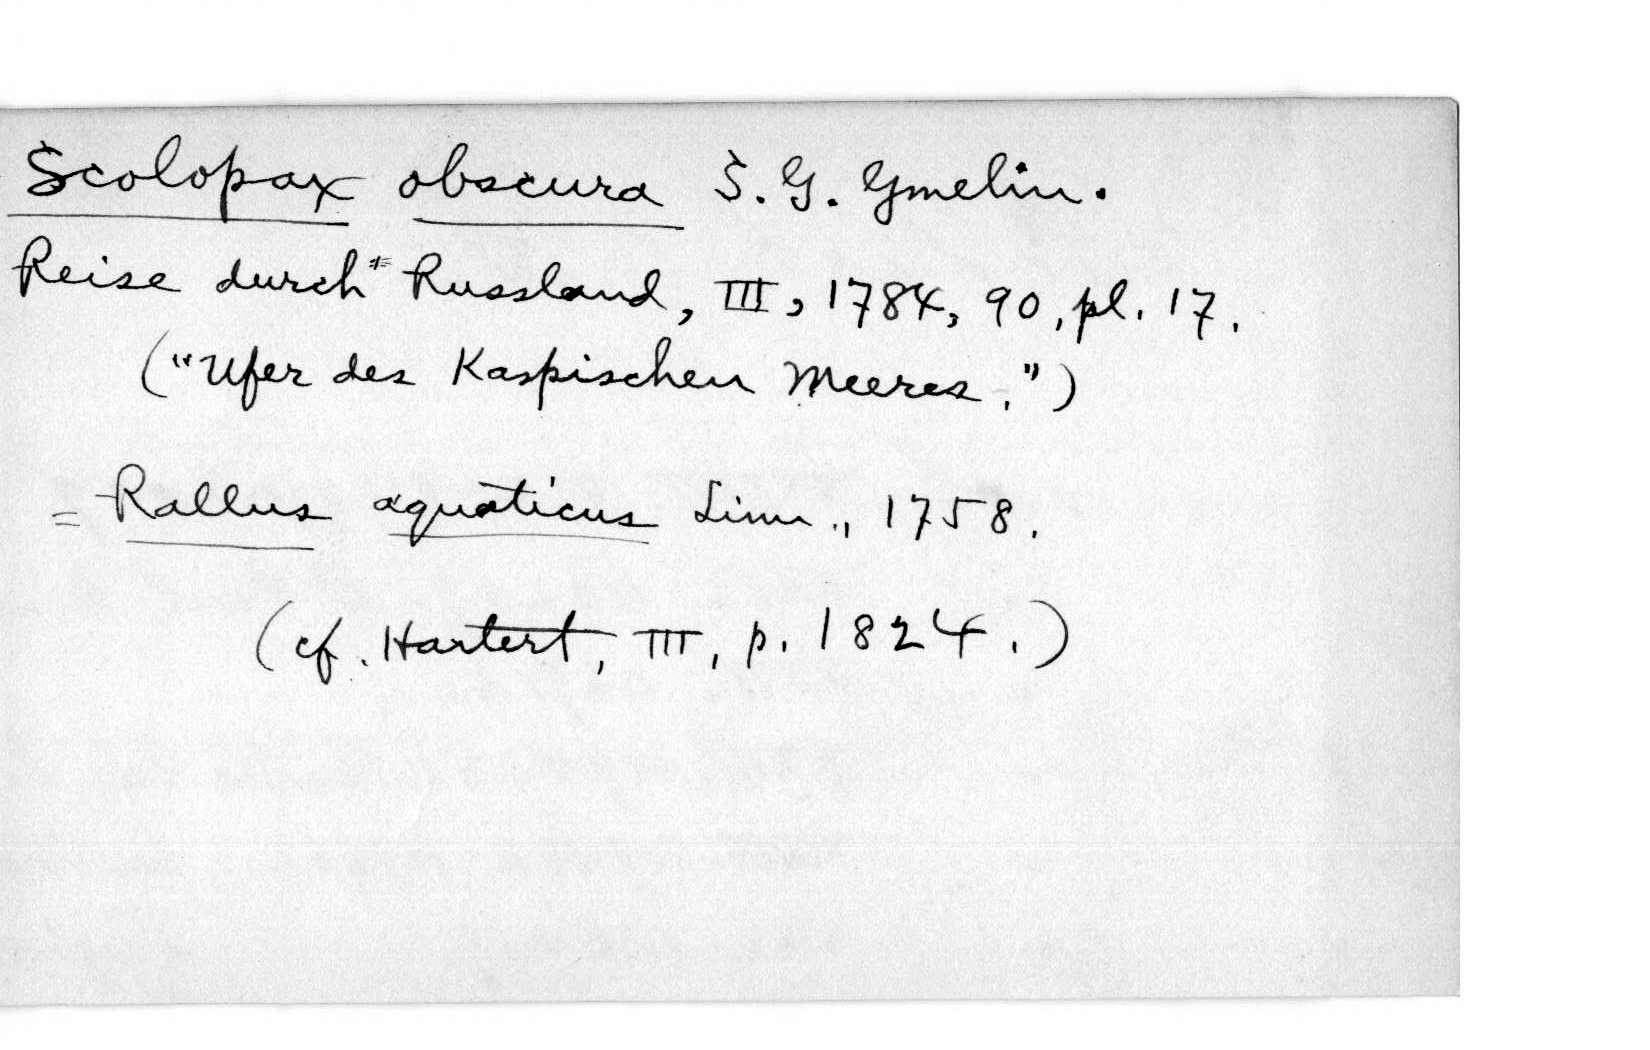 Scolopax obscura S. G. Gmelin.
Reise durch Russland, III, 1784, 90, pl. 17.
("Ufer des Kaspischen Meeres.")
= Rallus aquaticus Linn., 1758.
(cf. Hartert, III, p. 1824.)